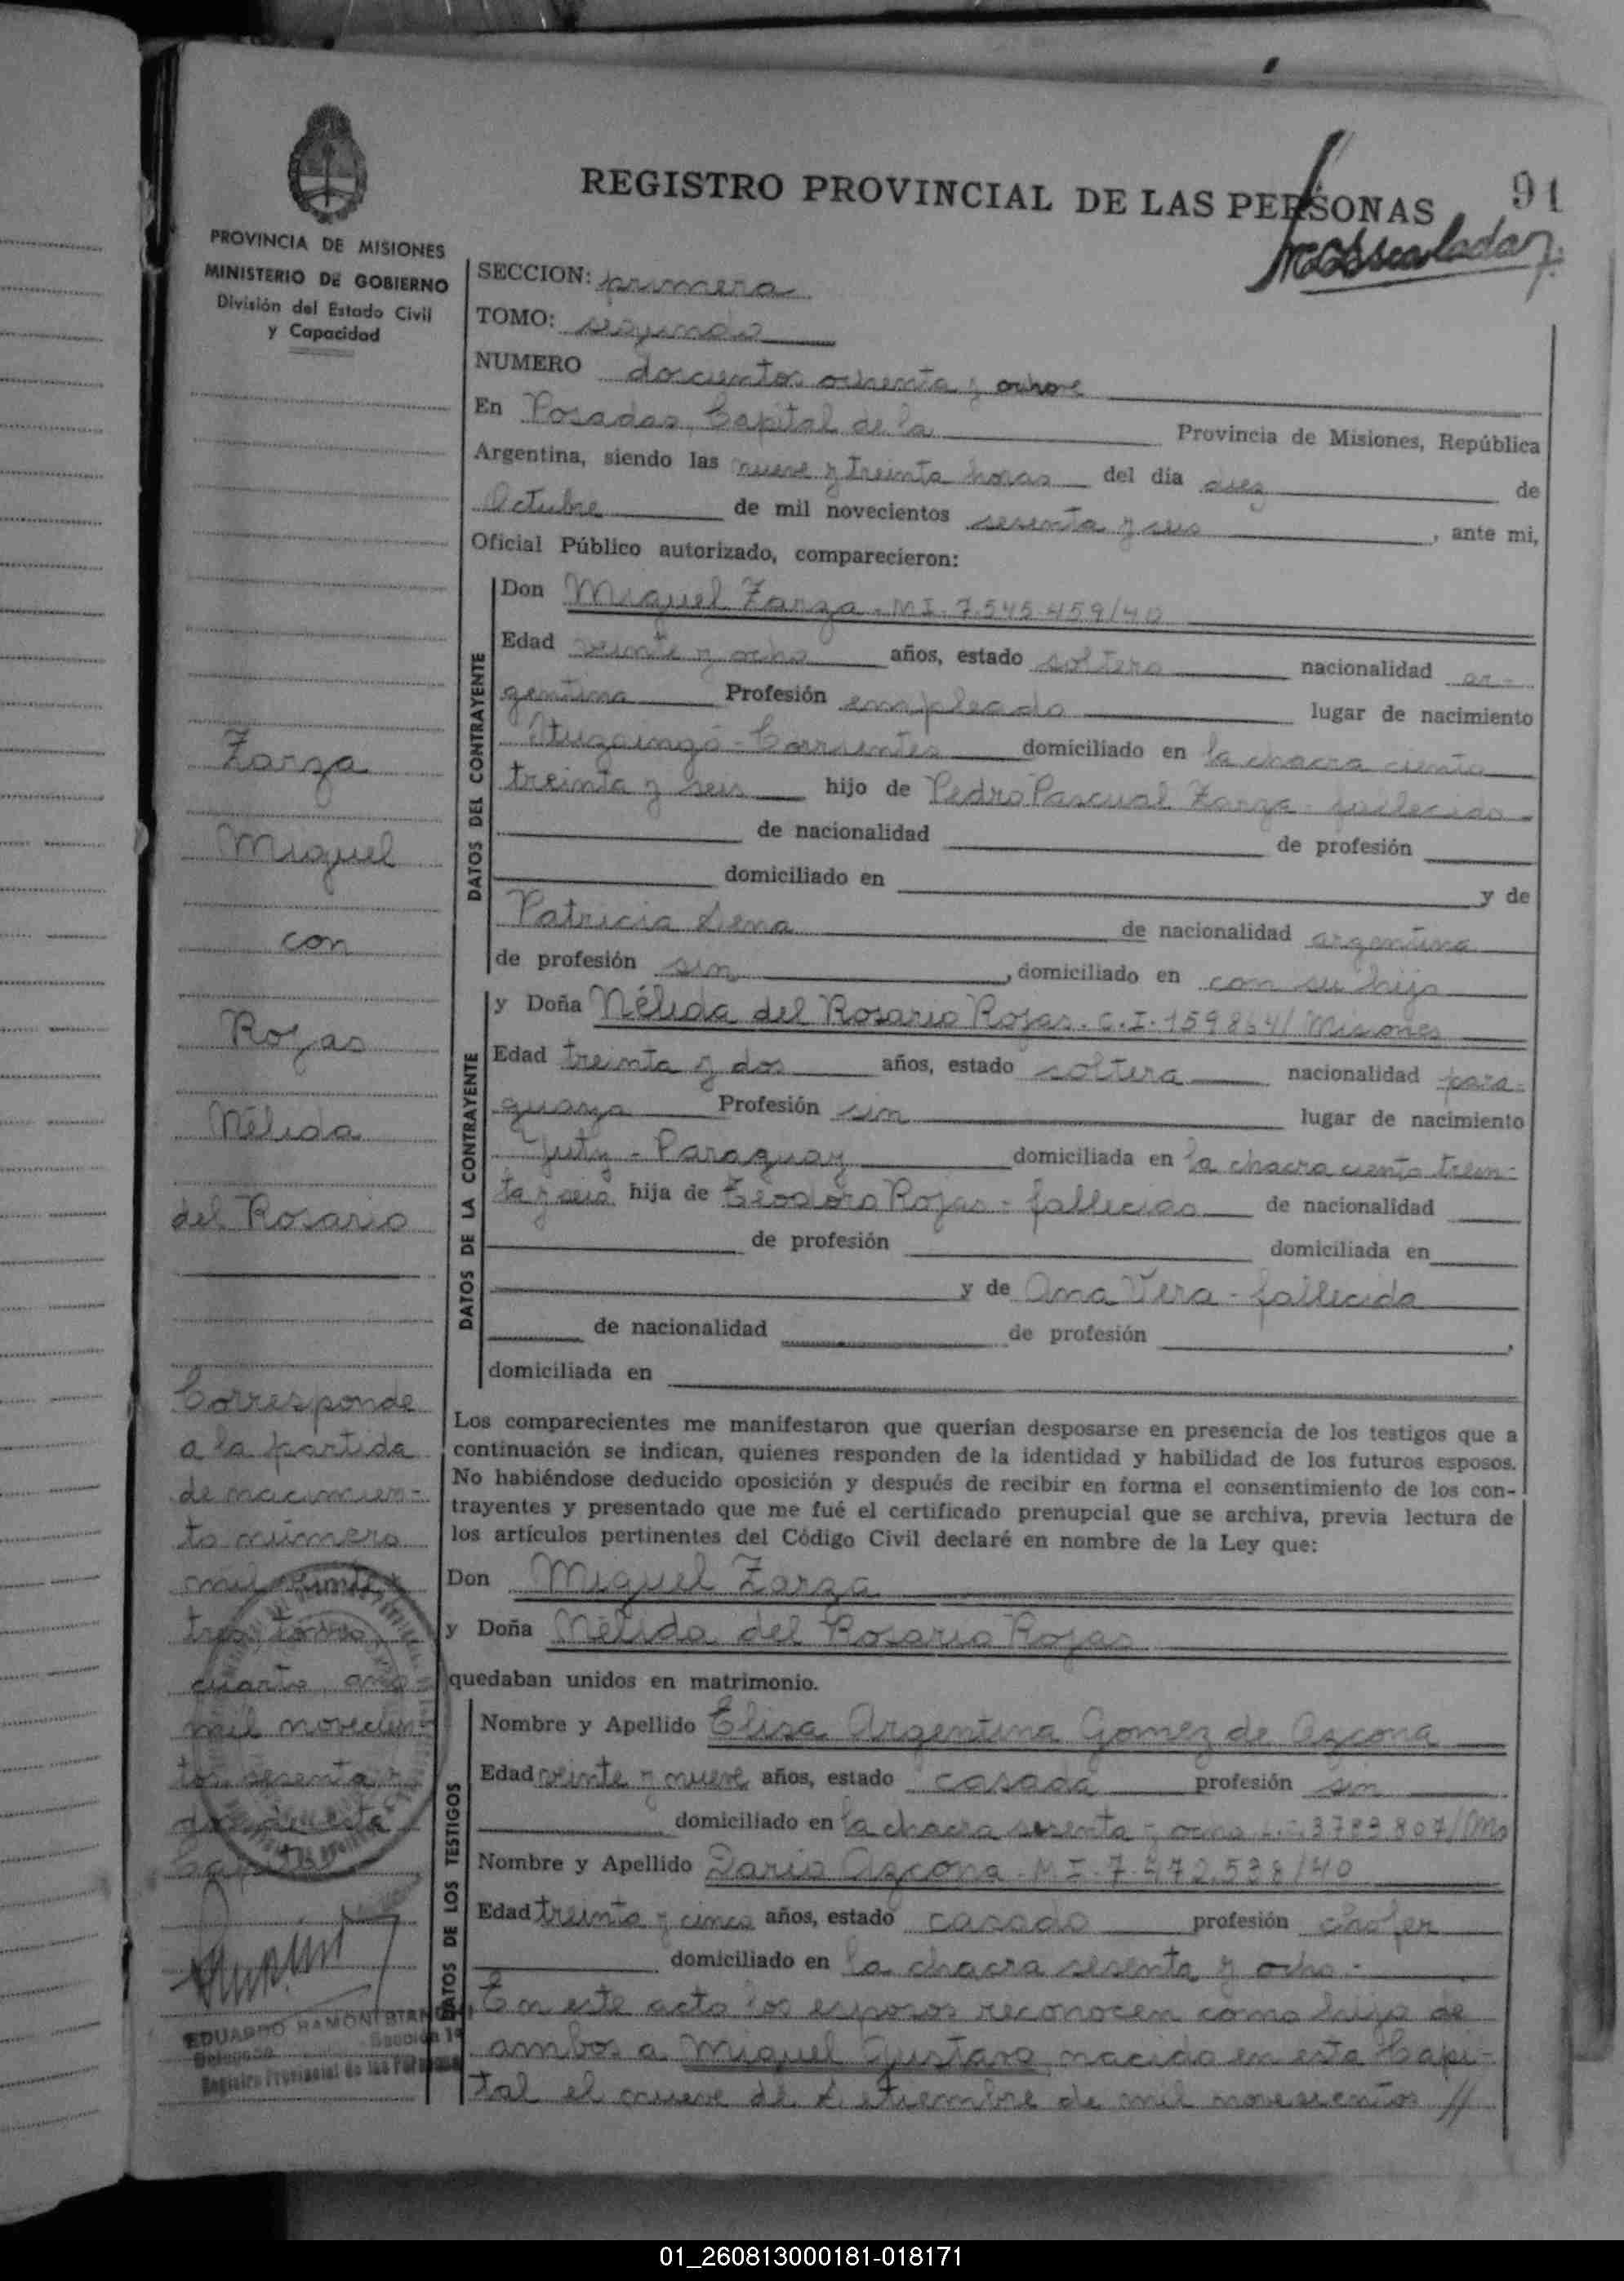 REGISTRO PROVINCIAL DE LAS PERSONAS
91
PROVINCIA DE MISIONES
MINISTERIO DE GOBIERNO
División del Estado Civil
y Capacidad
SECCION: primera
TOMO: segundo
NUMERO doscientos ochenta y
En Posadas, Capital de la Provincia de Misiones, República
Argentina, siendo las nueve y treinta horas del día diez de
Octubre de mil novecientos sesenta y seis, ante mi,
Oficial Público autorizado, comparecieron:
DATOS DEL CONTRAYENTE
Don Miguel Zarza - M.I. 7.545.459/40
Edad veinte y ocho años, estado soltero nacionalidad ar-
gentina Profesión empleado lugar de nacimiento
Ituzaingó - Corrientes domiciliado en la chacra ciento
treinta y seis hijo de Pedro Pascual Zarza - fallecido -
de nacionalidad de profesión
domiciliado en y de
Patricia Sena de nacionalidad argentina
de profesión sin, domiciliado en con su hijo
DATOS DE LA CONTRAYENTE
y Doña Nélida del Rosario Rojas. C.I. 159864/Misiones
Edad treinta y dos años, estado soltera nacionalidad para-
guaya Profesión sin lugar de nacimiento
Yuty - Paraguay domiciliada en la chacra ciento trein-
ta y seis hija de Teodoro Rojas - fallecido de nacionalidad
de profesión domiciliada en
y de Ana Vera - fallecida
de nacionalidad de profesión ,
domiciliada en
Los comparecientes me manifestaron que querían desposarse en presencia de los testigos que a
continuación se indican, quienes responden de la identidad y habilidad de los futuros esposos.
No habiéndose deducido oposición y después de recibir en forma el consentimiento de los con-
trayentes y presentado que me fué el certificado prenupcial que se archiva, previa lectura de
los artículos pertinentes del Código Civil declaré en nombre de la Ley que:
Don Miguel Zarza
y Doña Nélida del Rosario Rojas
quedaban unidos en matrimonio.
DATOS DE LOS TESTIGOS
Nombre y Apellido Elisa Argentina Gomez de Azcona
Edad veinte y nueve años, estado casada profesión sin
domiciliado en la chacra sesenta y ocho L.C. 3783807/Ms
Nombre y Apellido Dario Azcona - M.I. 7.472.538/40
Edad treinta y cinco años, estado casado profesión chofer
domiciliado en la chacra sesenta y ocho -
En este acto los esposos reconocen como hijo de
ambos a Miguel Gustavo nacido en esta Capi-
tal el nueve de Setiembre de mil novecientos //
Zarza
Miguel
con
Rojas
Nélida
del Rosario
Corresponde
a la partida
de nacimien-
to número
mil
tres tomo
cuarto año
mil novecien-
tos sesenta y
de esta
EDUARDO RAMON
Delegado Sección 1ª
Registro Provincial de las Personas
01_260813000181-018171